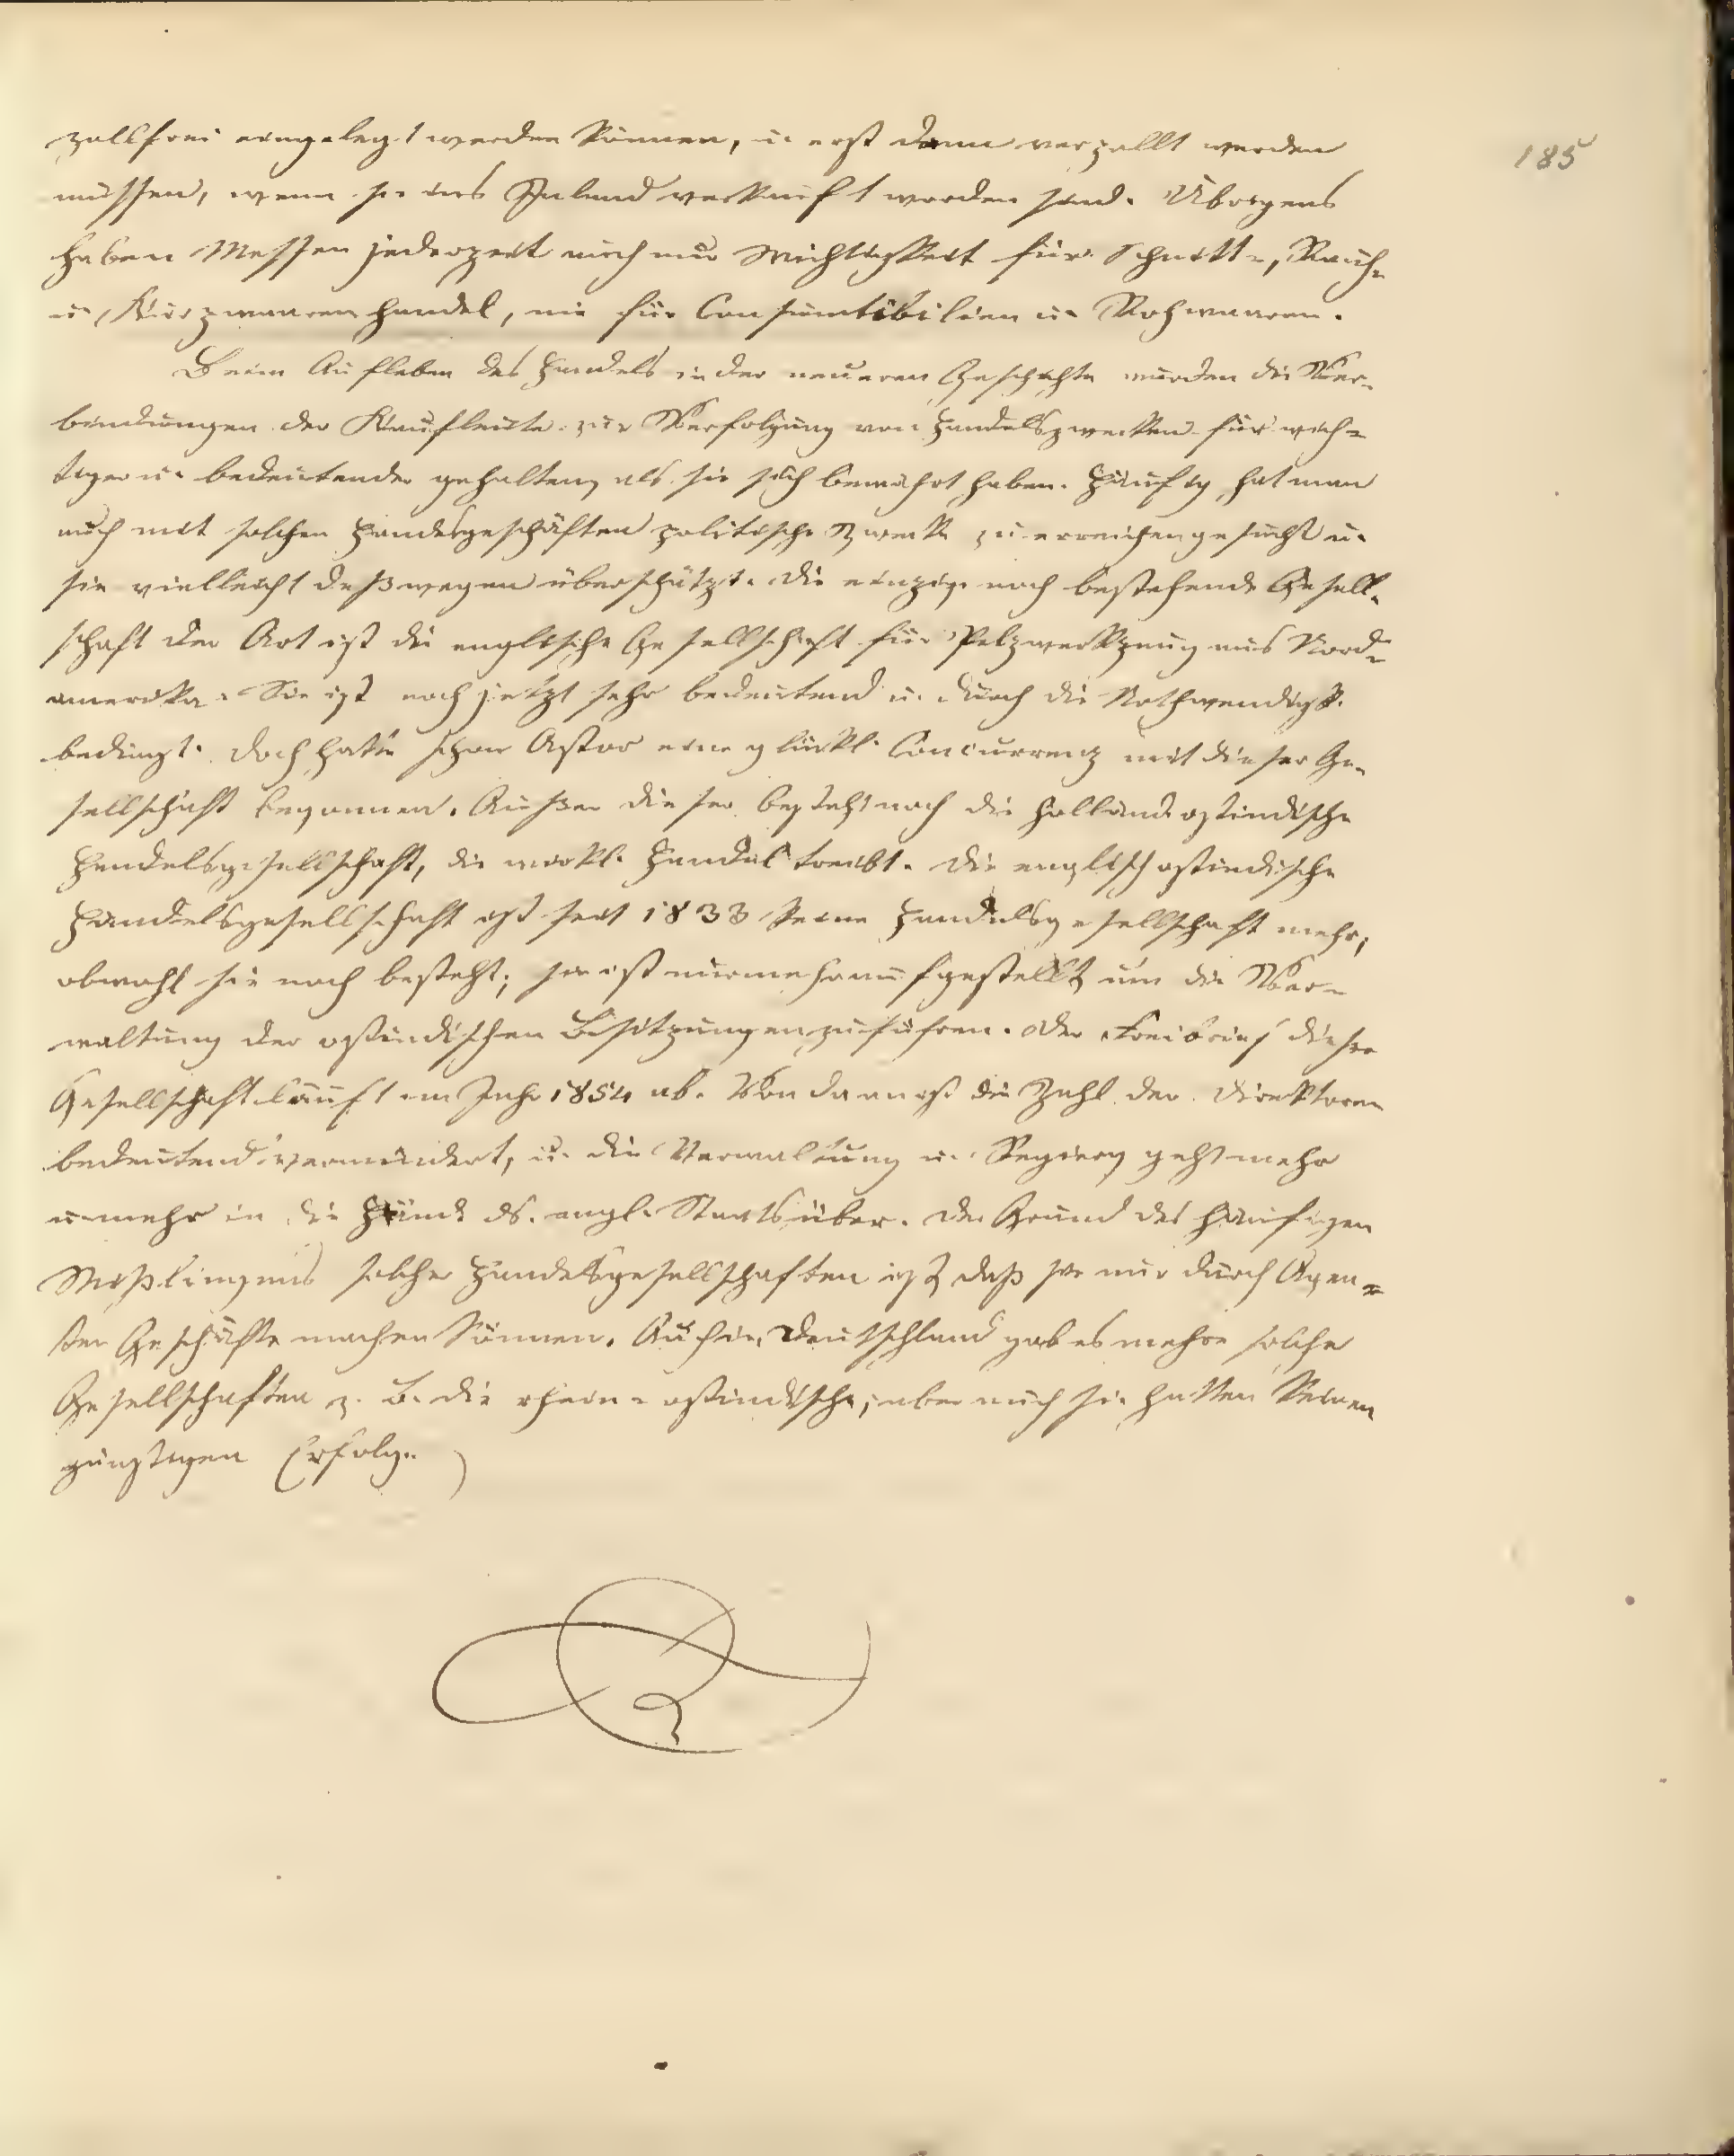 185
zollfrei eingelegt werden können, u. erst dann verzollt werden
müssen, wenn sie ins Inland verkauft worden sind. Übrigens
haben Messen jederzeit auch nur Wichtigkeit für Schnitt-, Rauch-
u. Kurzwaarenhandel, nie für Consumtibilien u. Rohwaaren.
Beim Aufleben des Handels in der neueren Geschichte wurden die Ver-
bindungen der Kaufleute zur Verfolgung von Handelszwecken für wich-
tiger u. bedeutender gehalten, als sie sich bewährt haben. Häufig hat man
auch mit solchen Handelsgeschäften politische Zwecke zu erreichen gesucht u.
sie vielleicht deßwegen überschätzt. Die einzige noch bestehende Gesell-
schaft der Art ist die englische Gesellschaft für Pelzwerkzeug aus Nord-
amerika. Sie ist noch jetzt sehr bedeutend u. durch die Nothwendigk.
bedingt. Doch hatte schon Astor eine glückl. Concurrenz mit dieser Ge-
sellschaft begonnen. Außer dieser besteht noch die holländ. ostindische
Handelsgesellschaft, die wirkl. Handel treibt. Die englisch ostindische
Handelsgesellschaft ist seit 1833 keine Handelsgesellschaft mehr,
obwohl sie noch besteht; sie ist nunmehr aufgestellt um die Ver-
waltung der ostindischen Besitzungen zu führen. Der Freibrief dieser
Gesellschaft läuft im Jahr 1854 ab. Von da an ist die Zahl der Direktoren
bedeutend vermindert, u. die Verwaltung u. Regierg geht mehr
u. mehr in die Hände ds. engl. Staats über. Der Grund des häufigen
Mißlingens solcher Handelsgesellschaften ist, daß sie nur durch Agen-
ten Geschäfte machen können. Auch in Deutschland gab es mehre solche
Gesellschaften z. B. die rhein-ostindische; aber auch sie hatten keinen
günstigen Erfolg.)